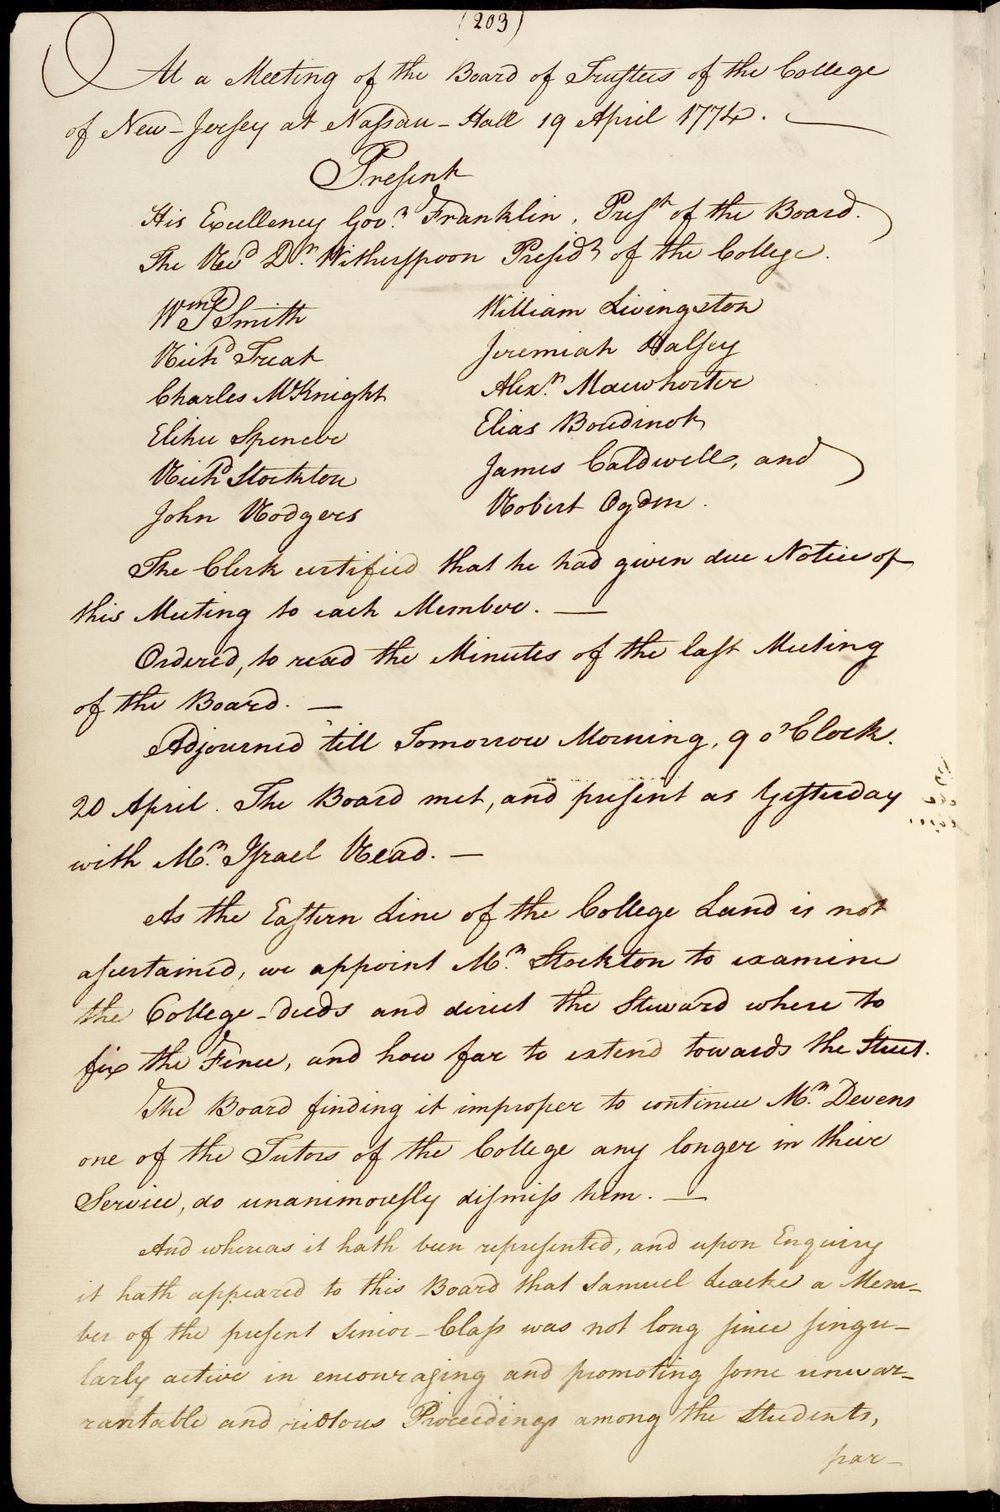 (203)
At a Meeting of the Board of Trustees of the College
of New-Jersey at Nassau-Hall 19 April 1774.
Present
His Excellency Govr. Franklin, Prest of the Board.
The Revd Dr. Witherspoon Presidt of the College.
Wm P Smith
William Livingston
Richd Treat
Jeremiah Halsey
Charles McKnight
Alexr. Macwhorter
Elihu Spencer
Elias Boudinot
Richd Stockton
James Caldwell, and
John Rodgers
Robert Ogden.
The Clerk certified that he had given due Notice of
this Meeting to each Member. —
Ordered, to read the Minutes of the last Meeting
of the Board. —
Adjourned 'till Tomorrow Morning, 9 o'Clock.
20 April. The Board met, and present as Yesterday
with Mr. Israel Read. —
As the Eastern Line of the College Land is not
ascertained, we appoint Mr. Stockton to examine
the College-deeds and direct the Steward where to
fix the Fence, and how far to extend towards the Street.
The Board finding it improper to continue Mr. Devens
one of the Tutors of the College any longer in their
Service, do unanimously dismiss him. —
And whereas it hath been represented, and upon Enquiry
it hath appeared to this Board that Samuel Leake a Mem-
ber of the present Senior-Class was not long since singu-
larly active in encouraging and promoting some unwar-
rantable and riotous Proceedings among the Students,
par-